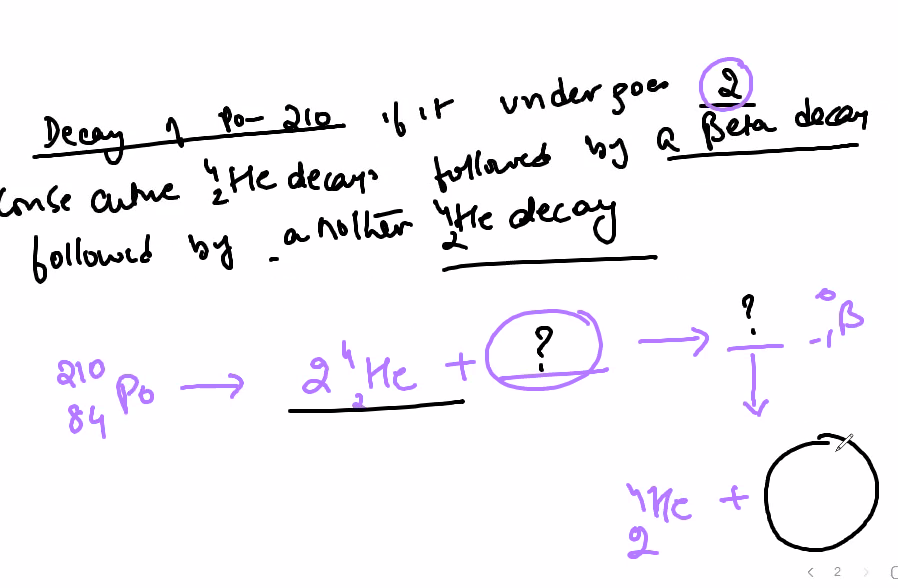 Decay of Po- 210 if it undergoes 2
Consecutive ⁴₂He decays followed by a Beta decay
followed by another ⁴₂He decay
²¹⁰₈₄Po → 2 ⁴₂He + ? → ? ⁰₋₁β
⁴₂He +
2